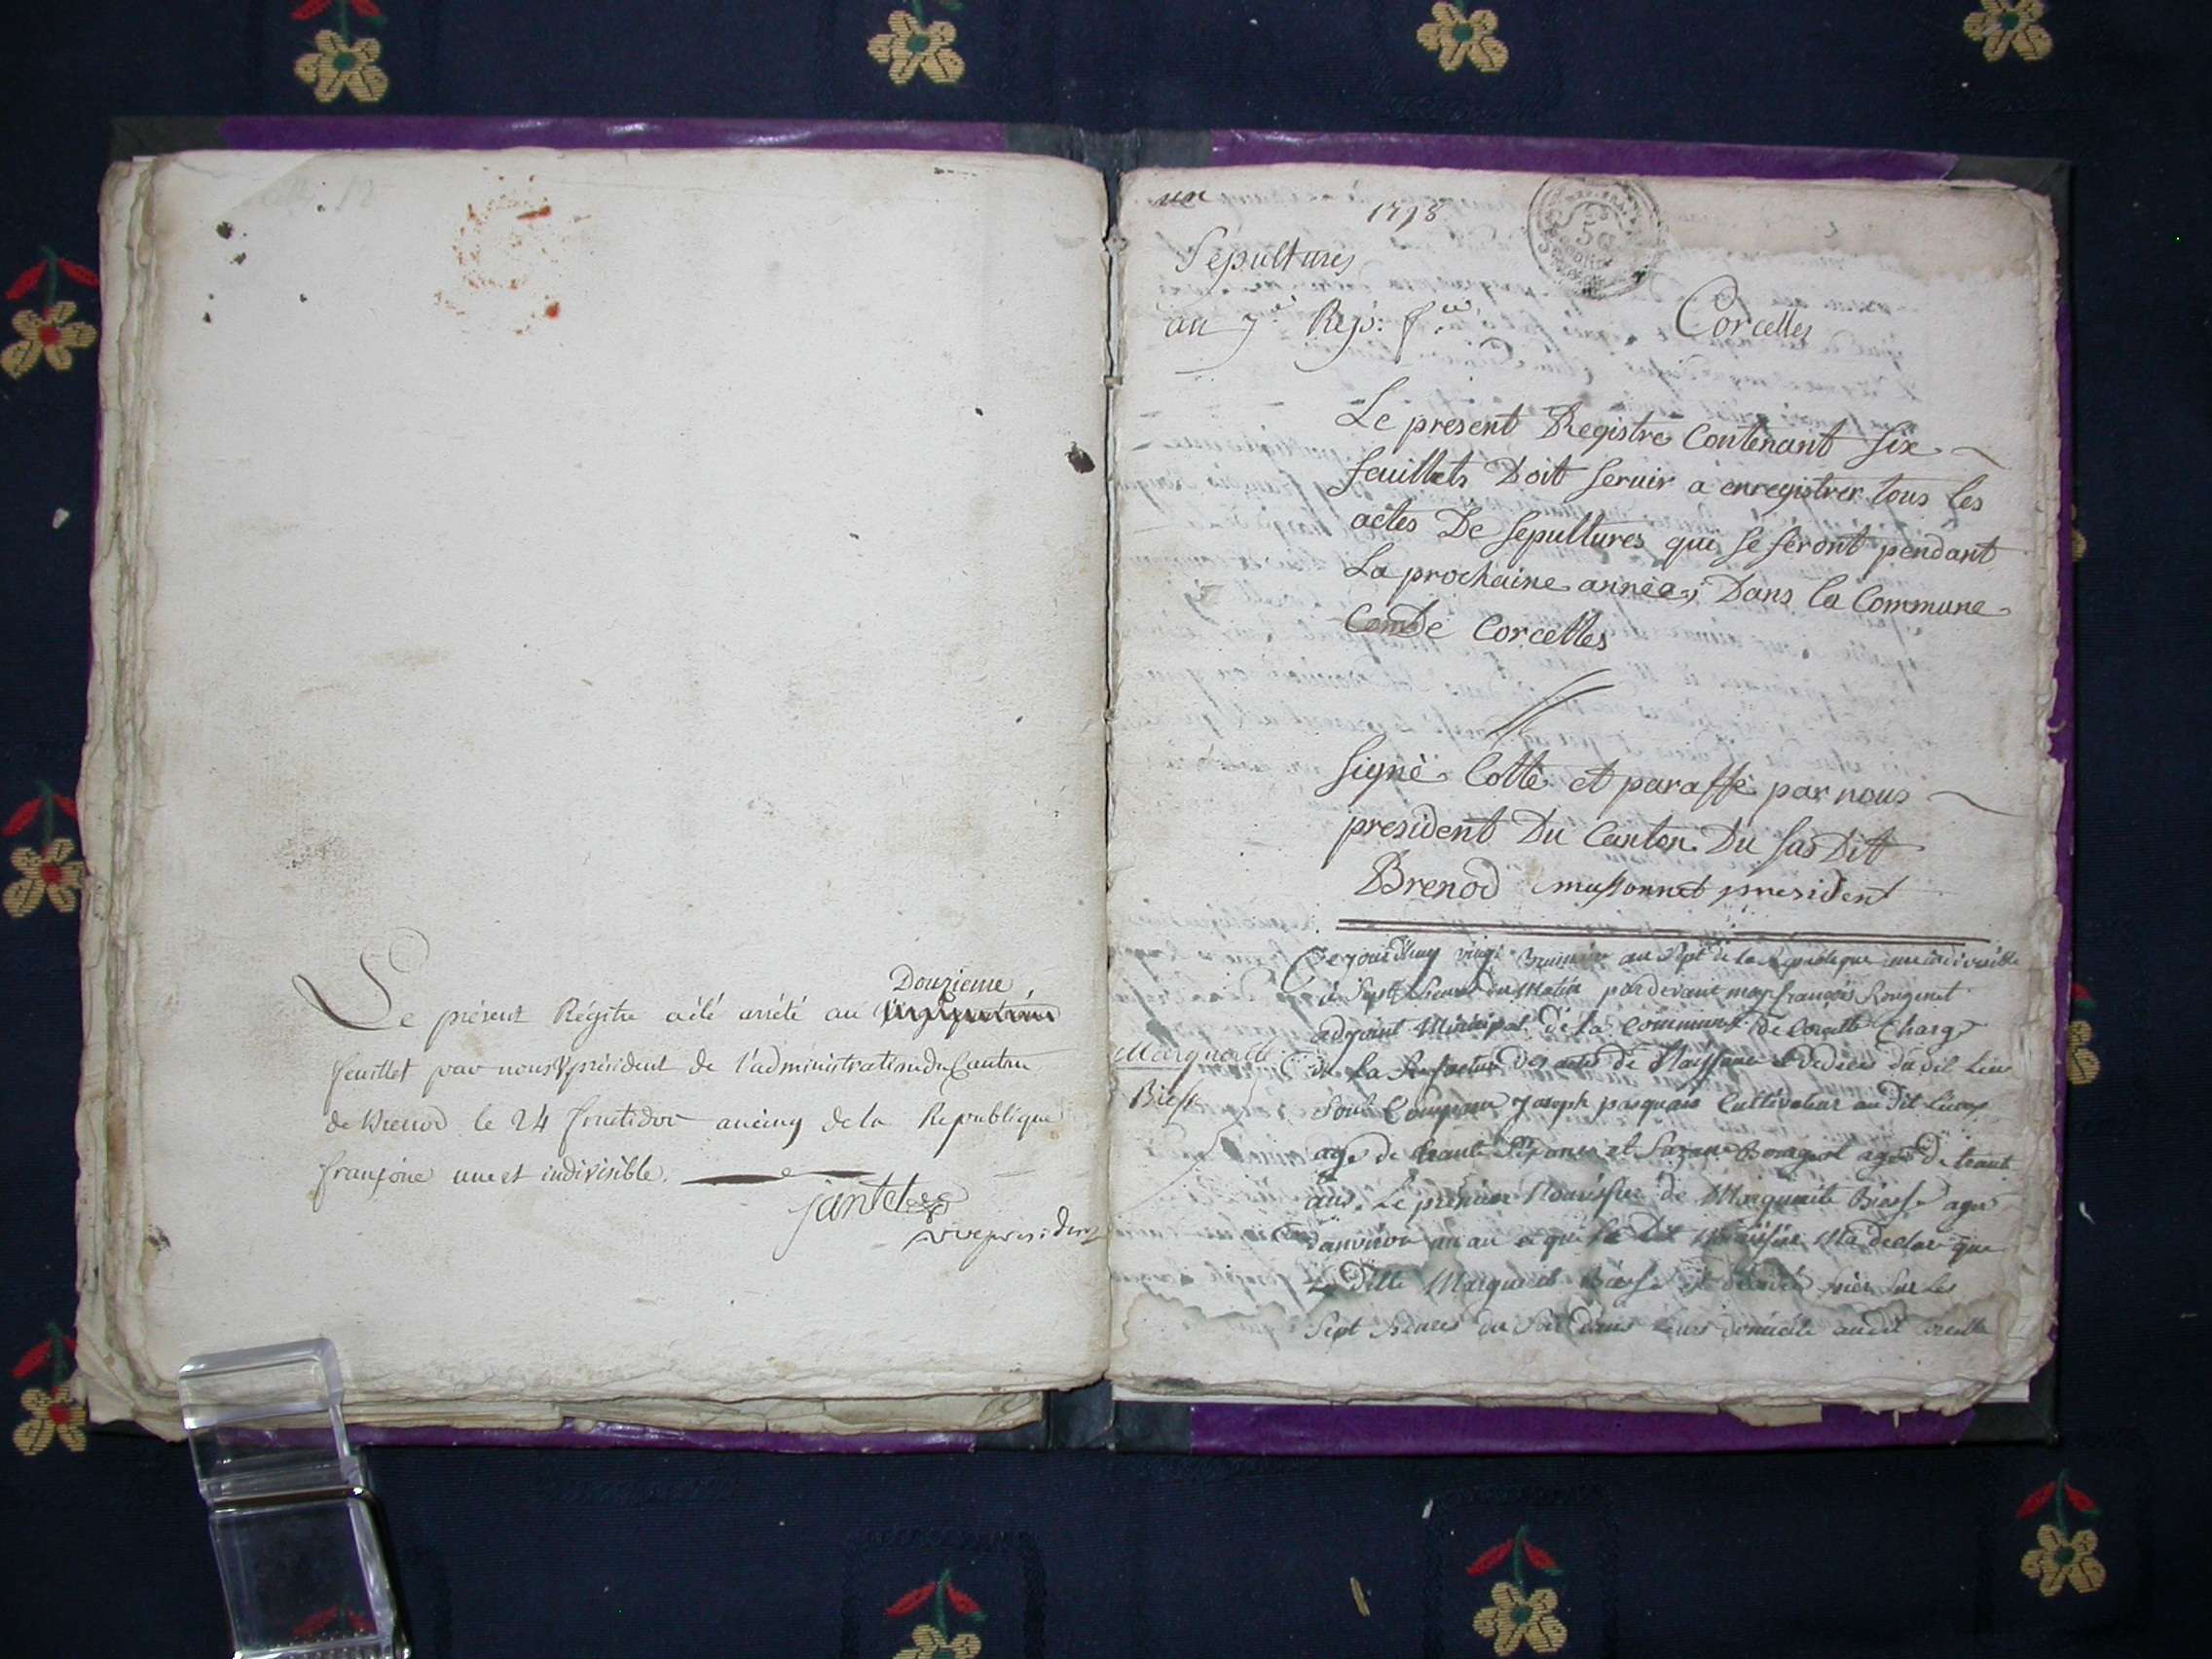 Douzieme
Le présent Régitre a été arrété au
feuillet par nous président de l'administration du Canton
de Brenod le 24 fructidor an cinq de la Republique
françoise une et indivisible.
jantet
vice president
un
1798
Sepultures
an 7.e Rep: f.se
Corcelles
Le present Registre Contenant six
feuillets Doit servir a enregistrer tous les
actes De sepultures qui se feront pendant
La prochaine année; Dans la Commune
De Corcelles
Signé Cotté et paraffé par nous
president Du Canton Du sus Dit
Brenod mussonnet president
Ce jourd'huy vingt Brumaire an Sept de la republique une indivisible
à Sept heures du Matin pardevant moy françois Rougemt
adjoint Municipal de la Commune de Corcelle Chargé
Marguerite
de La des actes de Naissance et Deces du dit Lieu
Biesse
Joseph pasquais Cultivateur au Dit Lieux
agé de trante ans et Suzanne agée De trante
ans. Le premier Nourissier de Marguerite Biesse agée
d'anviron un an Dit Nourissier M'a declaré que
La Ditte Marguerite Biesse est décédé hier sur les
Sept heures du Soir dans leurs domicile audit